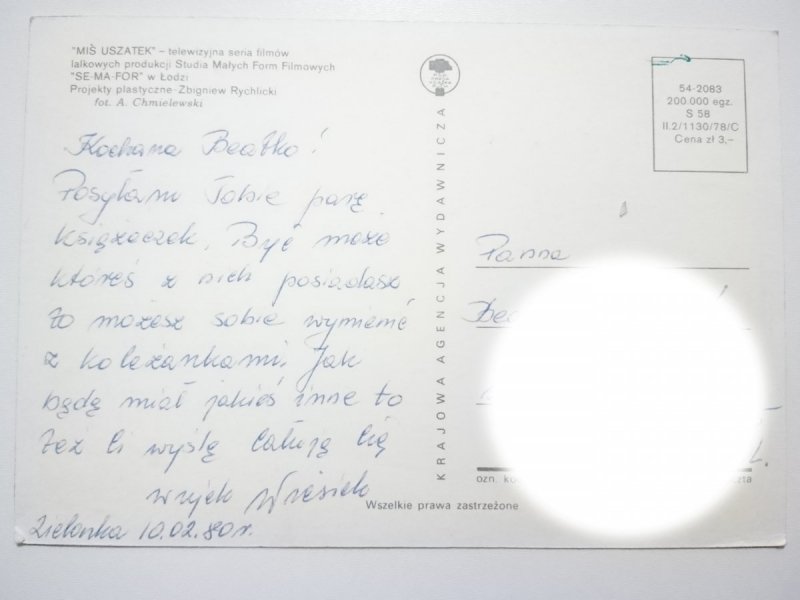 "MIŚ USZATEK" – telewizyjna seria filmów
lalkowych produkcji Studia Małych Form Filmowych
"SE-MA-FOR" w Łodzi
Projekty plastyczne-Zbigniew Rychlicki
fot. A. Chmielewski
Kochana Beatko!
Posyłam Tobie parę
książeczek. Być może
któreś z nich posiadasz
to możesz sobie wymienić
z koleżankami. Jak
będę miał jakieś inne to
też Ci wyślę Całuję Cię
wujek Wiesiek
Zielonka 10.02.80r.
KRAJOWA AGENCJA WYDAWNICZA
54-2083
200.000 egz.
S 58
II.2/1130/78/C
Cena zł 3,–
Panna
ozn.
Wszelkie prawa zastrzeżone